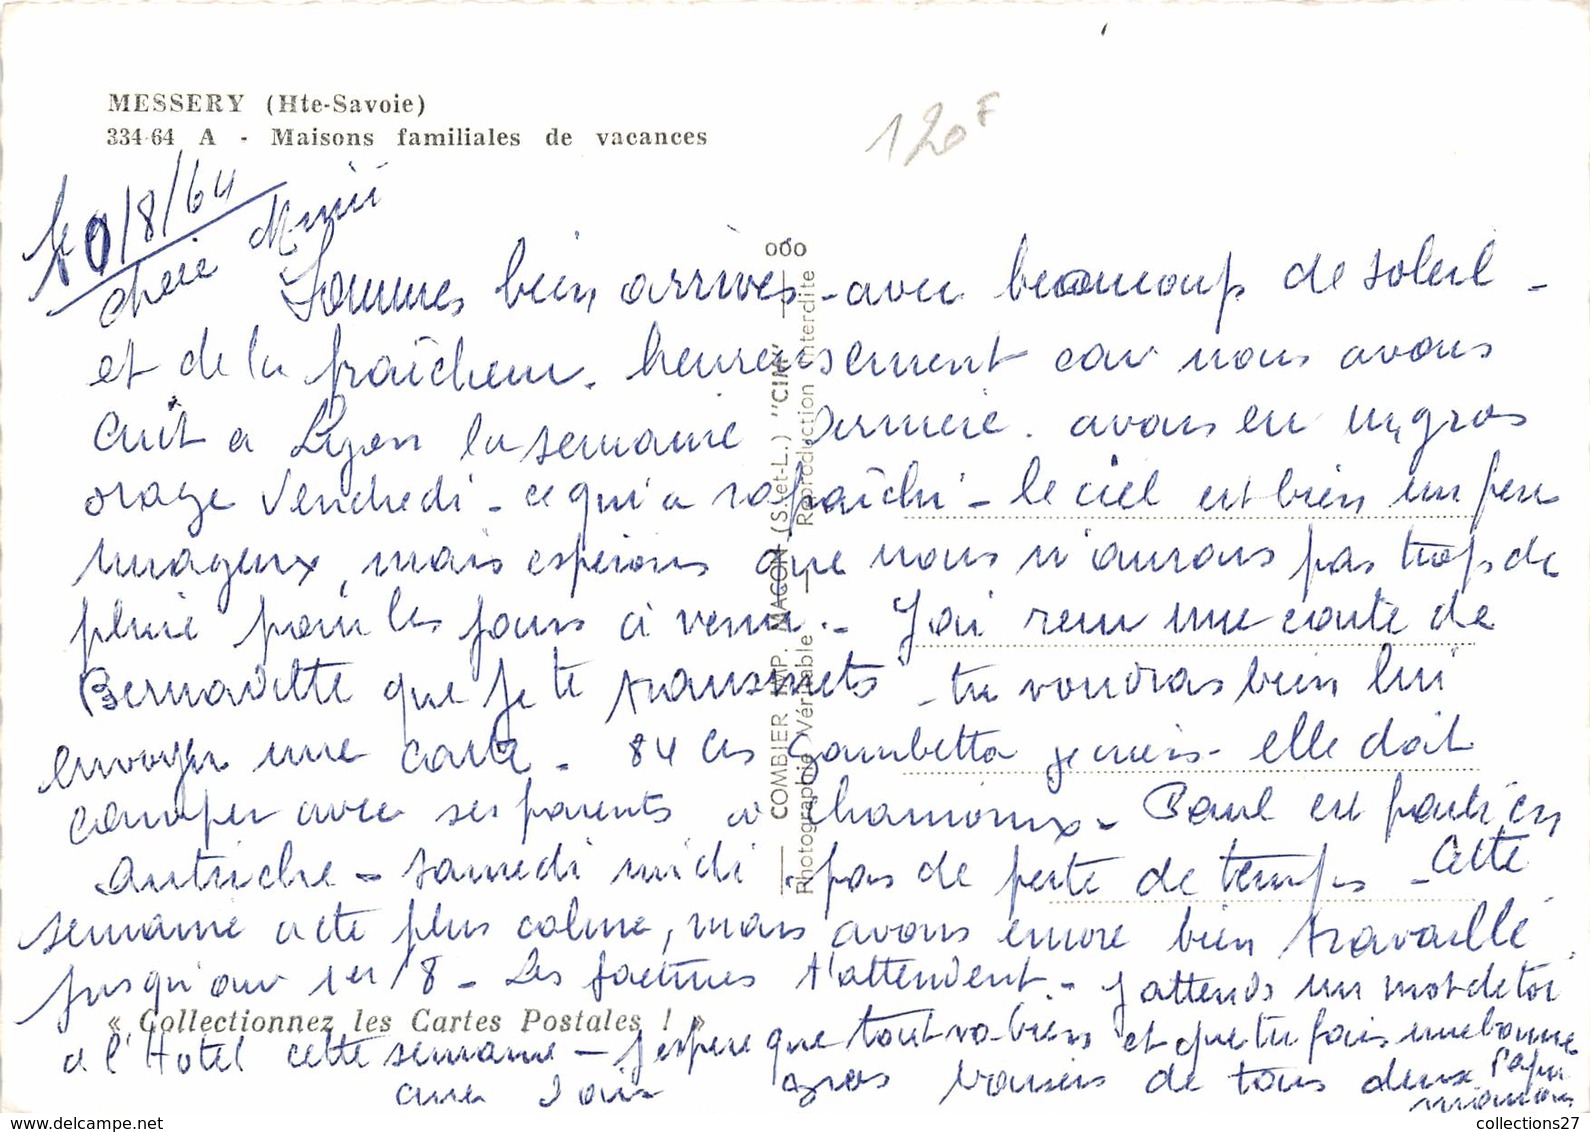 MESSERY (Hte-Savoie)
334-64 A - Maisons familiales de vacances
120F
10/8/64
chère Mimii
Sommes bien arrivés - avec beaucoup de soleil -
et de la fraîcheur. heureusement car nous avons
cuit a Lyon la semaine dernière. avons eu un gros
orage Vendredi - ce qui a rafraîchi - le ciel est bien un peu
nuageux, mais espérons que nous n'aurons pas trop de
pluie pour les jours à venir. - J'ai reçu une carte de
Bernadette que je te transmets - tu voudras bien lui
envoyer une carte - 84 Crs Gambetta - elle doit
camper avec ses parents a chamonix - Paul est parti en
Autriche - samedi midi - pas de perte de temps - Cette
semaine a été plus calme, mais avons encore bien travaillé
jusqu'au 1er/8 - Les factures t'attendent. - J'attends un mot de toi
« Collectionnez les Cartes Postales ! »
a l'Hotel cette semaine - J'espère que tout va bien et que tu fais une bonne
cure gros baisers de tous deux Papa
mamans
ODO
COMBIER IMP. MACON (S.-et-L.) "CIM"
Photographie Véritable — Reproduction interdite
collections27